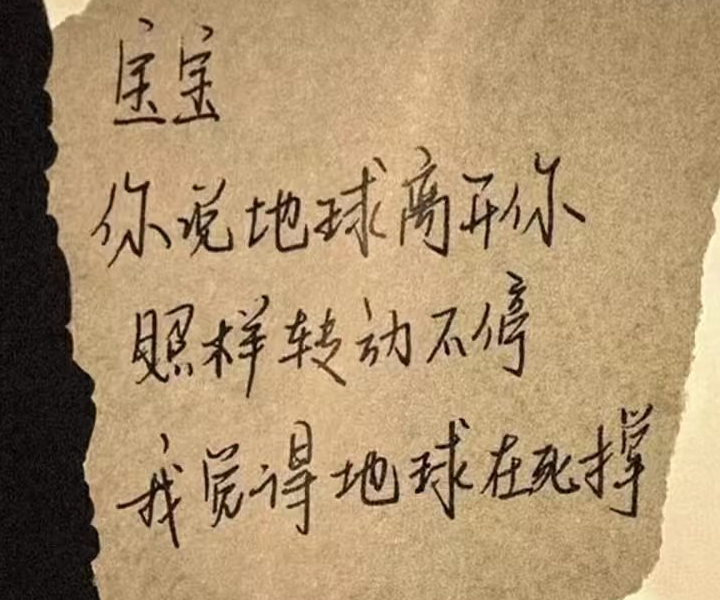 宝宝
你说地球离开你
照样转动不停
我觉得地球在死撑